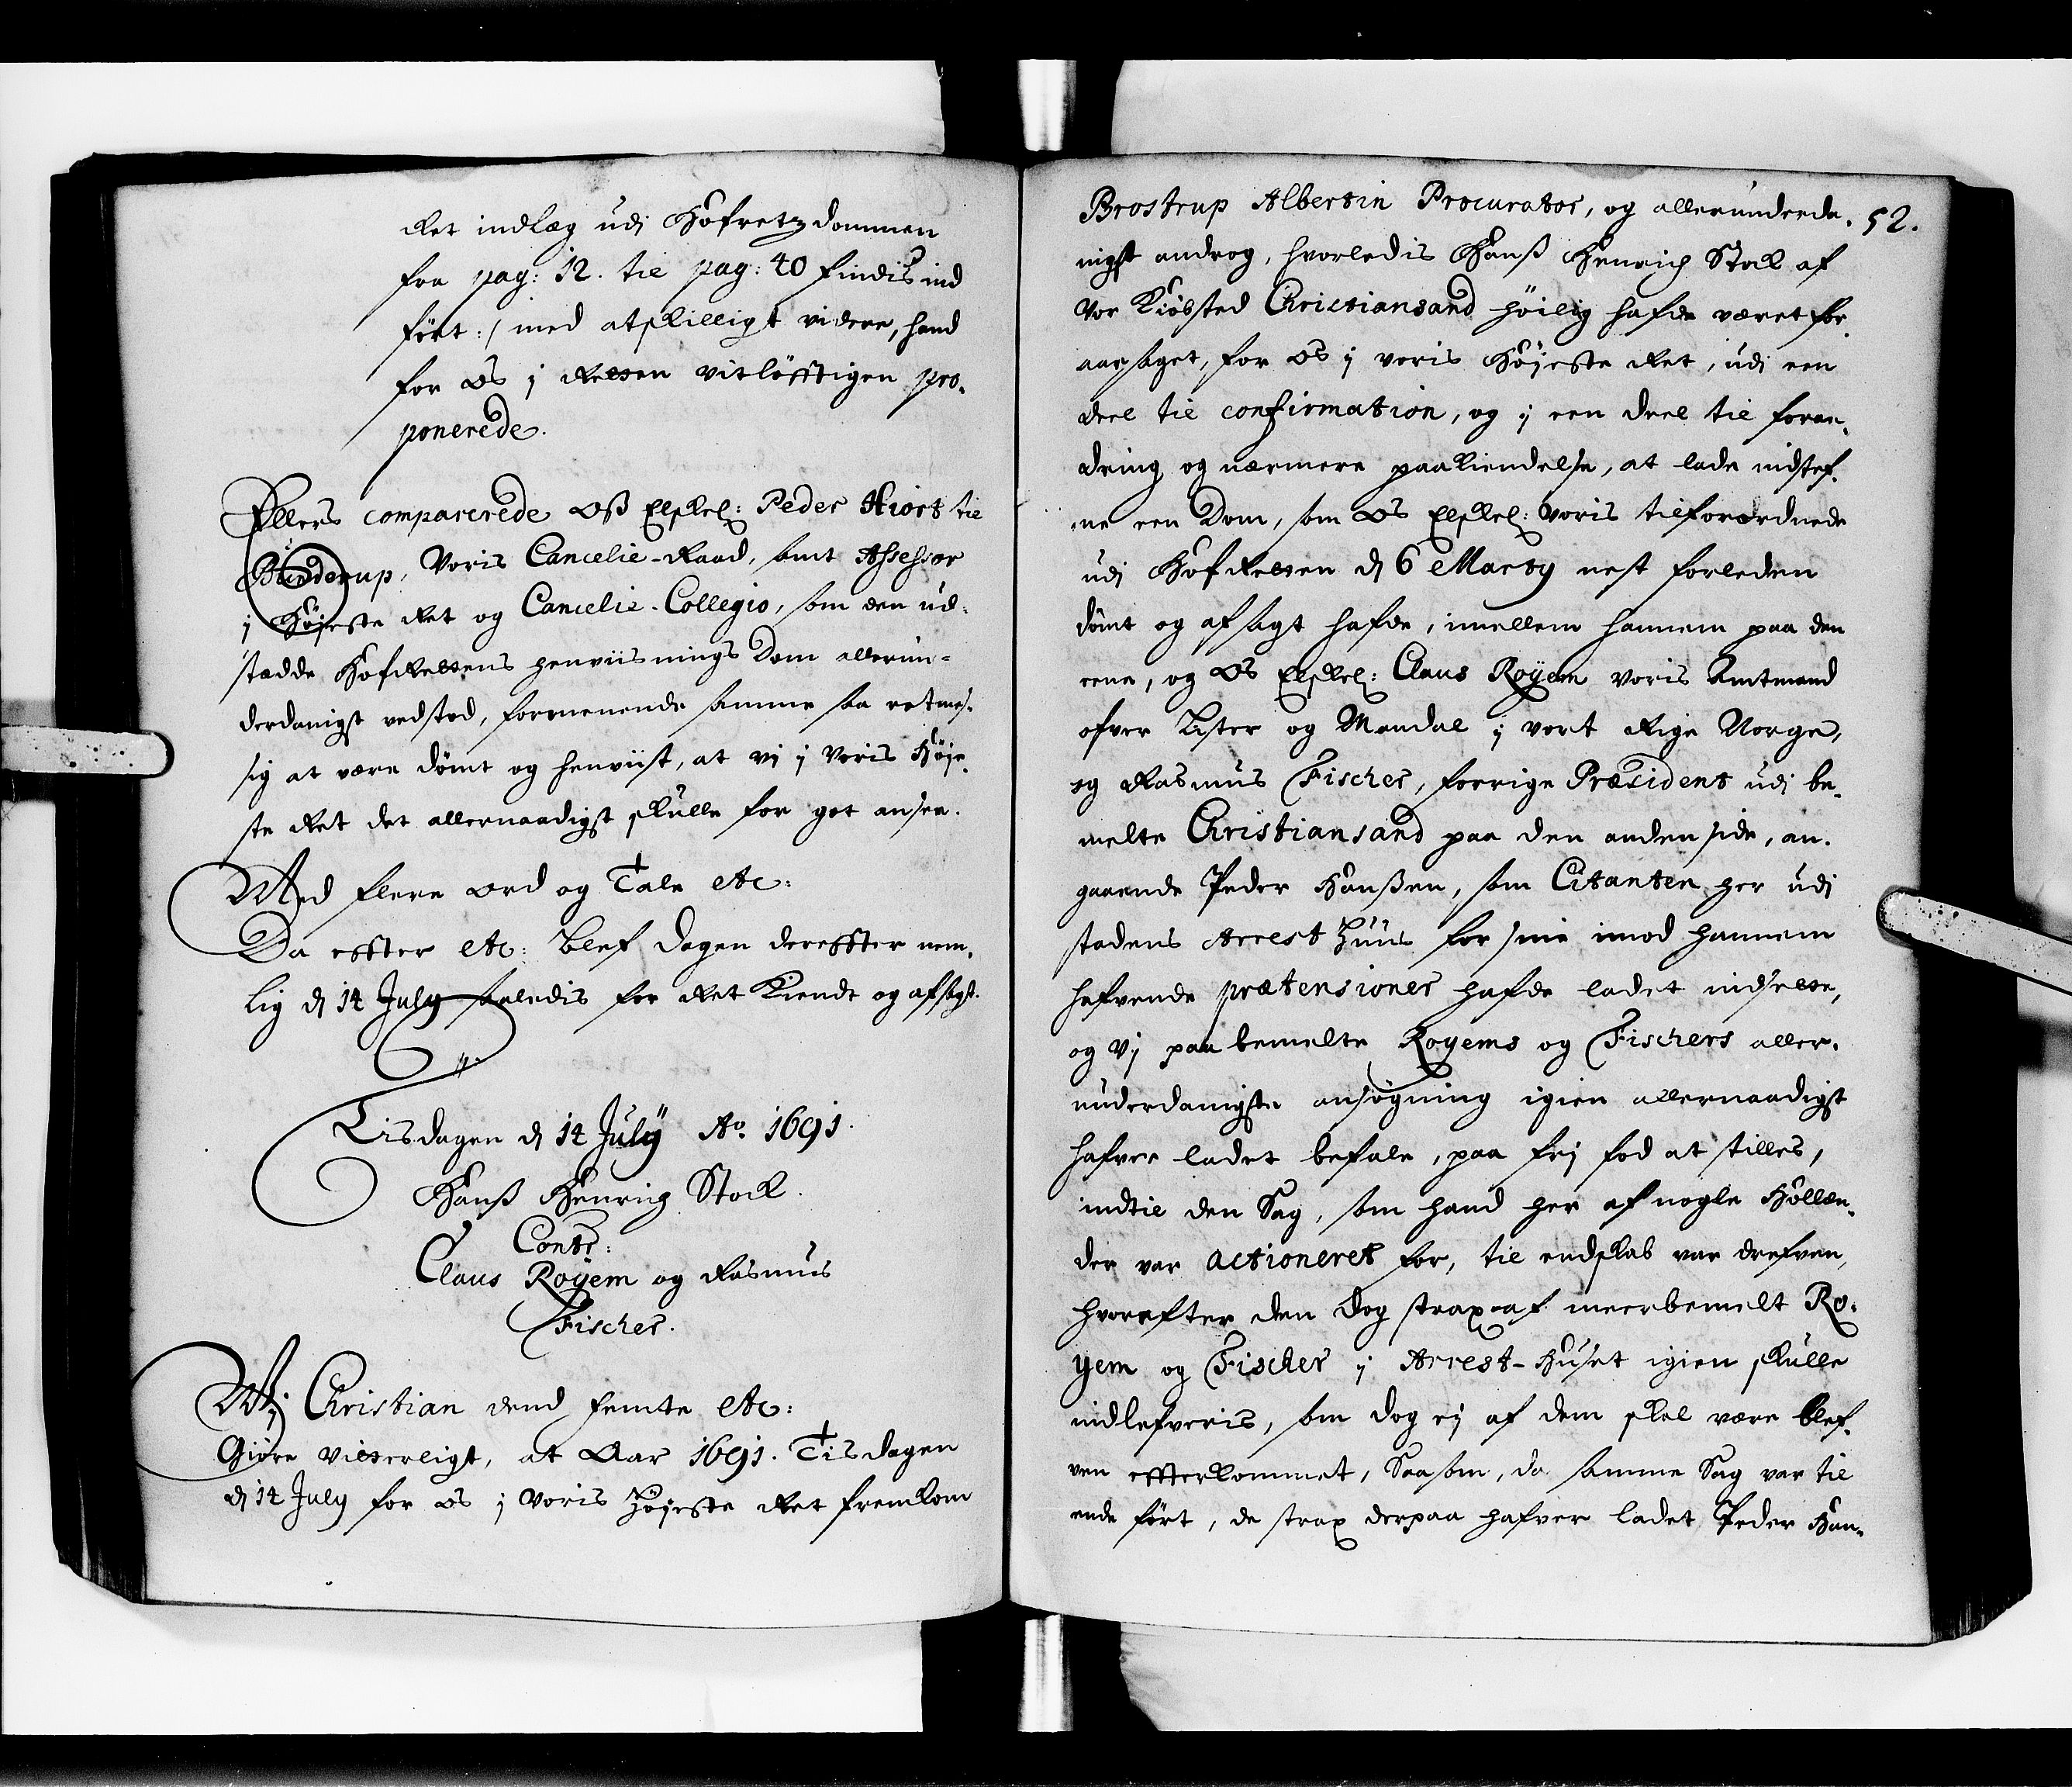 Ret indlæg udj Hofretz dommen
fra pag: 12. til pag: 40 findis ind
ført :/ med atskilligt videre, hand
for os j Retten vitløfftigen pro-
ponerede.
Ellers comparerede Oß Elskel: Peder Hiort til
Bunderup, Voris Cancelie-Raad, samt Assessor
j Højeste Ret og Cancelie-Collegio, som den ud-
stædde HofRettens henviisnings Dom allerun-
derdanigst vedstod, formenende samme saa retmes-
sig at være dömt og henviist, at vi j Voris Höje-
ste Ret det allernaadigst skulle for got ansee.
Med flere Ord og Tale etc:
Da effter etc: blef dagen dereffter nem-
lig d 14 July saaledis for Ret Kiendt og afsagt.
Tisdagen d 14 Julÿ Ao. 1691.
Hanß Henrich Stock.
Contr:
Claus Royem og Rasmus
Fischer.
Wj Christian dend femte etc:
Giøre vitterligt, at Aar 1691. Tisdagen
d 14 July for os j Voris Højeste Ret fremkom
52.
Brostrup Albertin Procurator, og allerunderda-
nigst androg, hvorledis Hanß Henrich Stock af
Vor Kiøbsted Christiansand höilig hafde været for
aarsaget, for Os j voris Höjeste Ret, udj een
deel til confirmation, og j een deel til foran-
dring og nærmere paakiendelse, at lade indstef-
ne een Dom, som Os Elskel: Voris tilforordnede
udj HofRetten d 6 Marty nest forleden
dömt og afsagt hafde, imellem hannem paa den
eene, og Os Elskel: Claus Roÿem voris Amtmand
ofver Lister og Mandal j vort Rige Norge,
og Rasmus Fischer, forrige Præsident udj be-
melte Christiansand paa den anden side, an-
gaaende Peder Hanßen, som Citanten her udj
stadens Arrest Huus for sine imod hannem
hafvende prætensioner hafde ladet indsette,
og vj paa bemelte Royems og Fischers aller-
underdanigste ansøgning igien allernaadigst
hafver ladet befale, paa frj fod at stilles,
indtil den Sag, som hand her af nogle Hollæn-
der var actioneret for, til endskab var drefven,
hvorefter den dog strax af meerbemelt Ro-
yem og Fischer j Arrest-Huset igien skulle
indlefveris, som dog ej af dem skal være blef-
ven effterkommet, Saasom, da samme Sag var til
ende fört, de strax derpaa hafver ladet Peder Han-